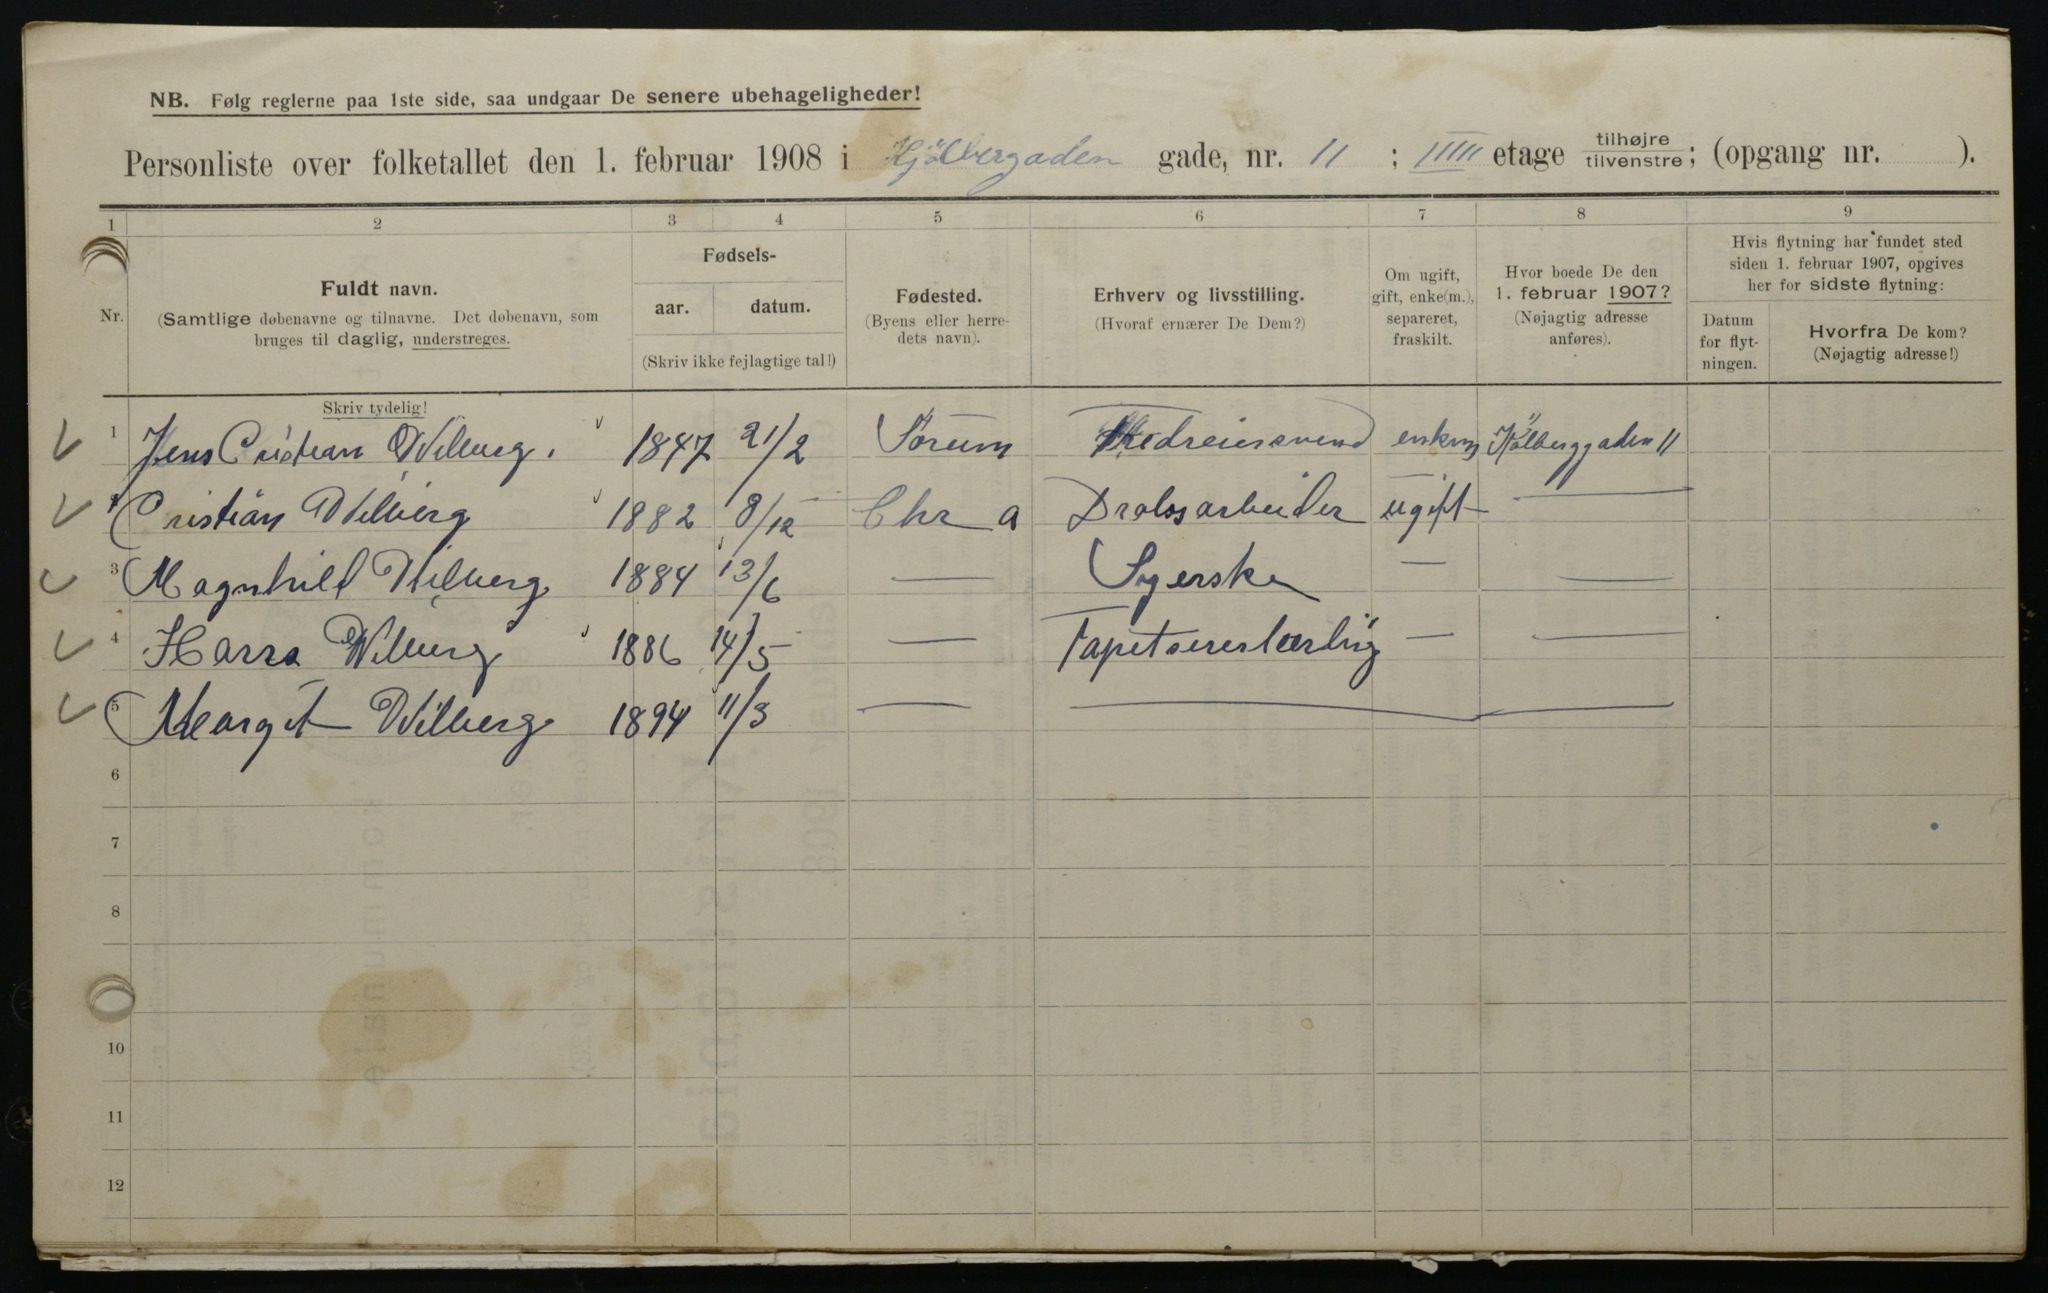 NB. Følg reglerne paa 1ste side, saa undgaar De senere ubehageligheder!
Personliste over folketallet den 1. februar 1908 i Kjølbergaden gade, nr. 11 ; IIIII etage tilhøjre/tilvenstre; (opgang nr. ).
1 2 3 4 5 6 7 8 9
Nr.
Fuldt navn.
(Samtlige døbenavne og tilnavne. Det døbenavn, som
bruges til daglig, understreges.
Skriv tydelig!
Fødsels-
aar. datum.
(Skriv ikke fejlagtige tal!)
Fødested.
(Byens eller herre-
dets navn).
Erhverv og livsstilling.
(Hvoraf ernærer De Dem?)
Om ugift,
gift, enke(m.),
separeret,
fraskilt.
Hvor boede De den
1. februar 1907?
(Nøjagtig adresse
anføres).
Hvis flytning har fundet sted
siden 1. februar 1907, opgives
her for sidste flytning:
Datum
for flyt-
ningen.
Hvorfra De kom?
(Nøjagtig adresse!)
1 Jens Cristian Wilberg. 1847 21/2 Sørum enkm Kølberggaden 11
2 Cristian Wilberg 1882 8/12 Chr a ugift —
3 Magnhild Wilberg 1884 13/6 — Syerske — —
4 Harra Wilberg 1886 14/5 — Tapetsererlærling — —
5 Margit Wilberg 1894 11/3 — — —
6
7
8
10
11
12